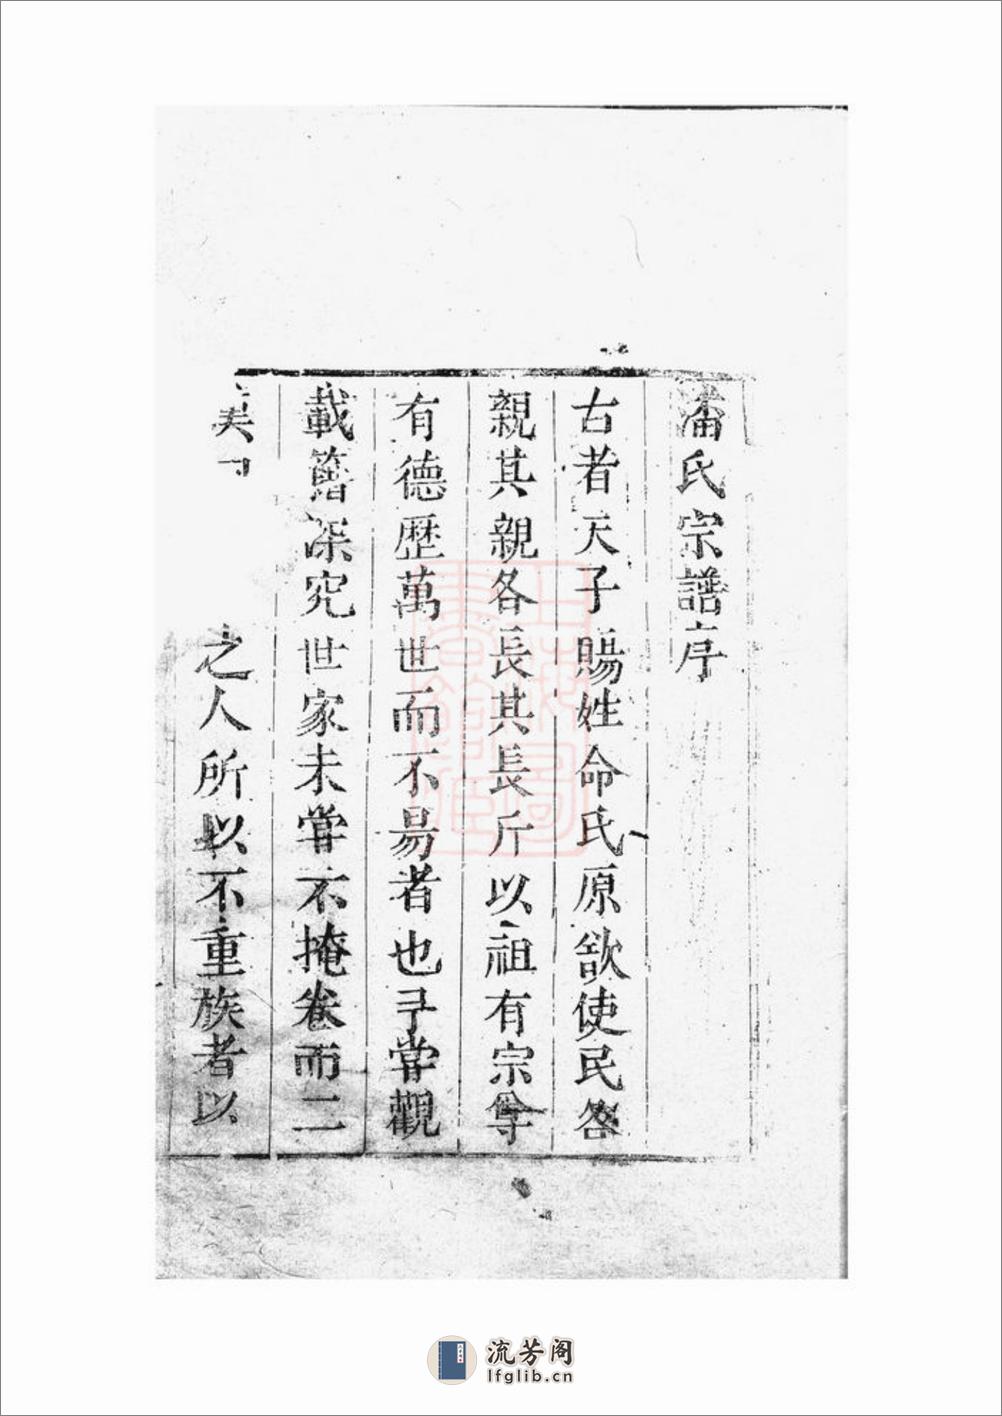 潘氏宗譜序
古者天子賜姓命氏原欲使民各
親其親各長其長斤以祖有宗尊
有德歷萬世而不易者也予嘗觀
載籍深究世家未嘗不掩卷而二
美 之人所以不重族者以
上海圖書館藏
流芳阁
lfglib.cn